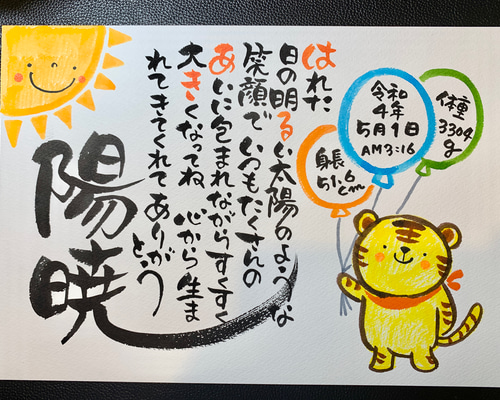 はれた
日の明るい太陽のような
笑顔でいつもたくさんの
あいに包まれながらすくすく
大きくなってね 心から生ま
れてきてくれてありが
とう
陽暁
令和
4年
5月1日
AM3:16
体重
3304
g
身長
51.6
cm